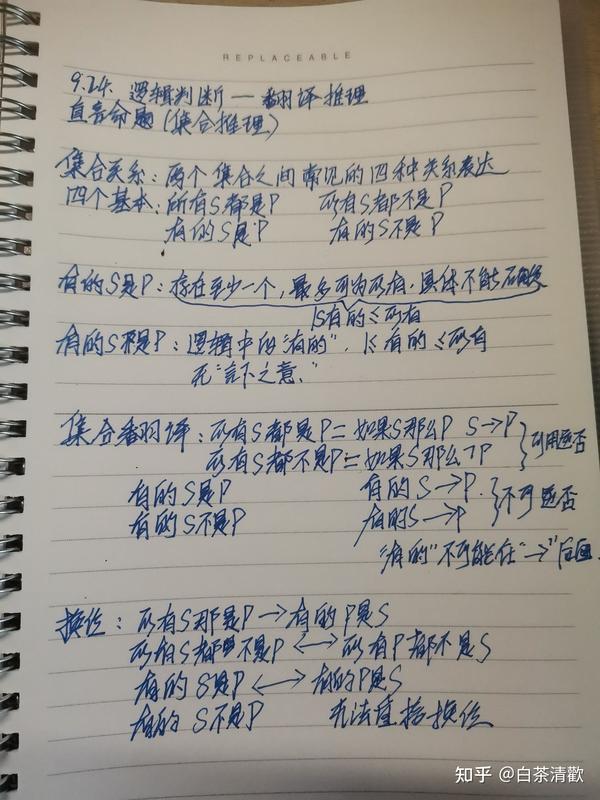 REPLACEABLE
9.24. 逻辑判断一翻译推理
直言命题(集合推理)
集合关系:两个集合之间常见的四种关系表达
四个基本:所有S都是P 所有S都不是P
有的S是P 有的S不是P
有的S是P:存在至少一个,最多可为所有,具体不能确定
1≤有的≤所有
有的S不是P:逻辑中的"有的".1≤有的≤所有
无"言下之意."
集合翻译:所有S都是P=如果S那么P S→P
所有S都不是P=如果S那么¬P 可用逆否
有的S是P 有的S→P.
有的S不是P 有的S→P 不可逆否
"有的"不可能在"→"后面.
换位:所有S都是P→有的P是S
所有S都不是P↔所有P都不是S
有的S是P↔有的P是S
有的S不是P 无法直接换位
知乎 @白茶清歡